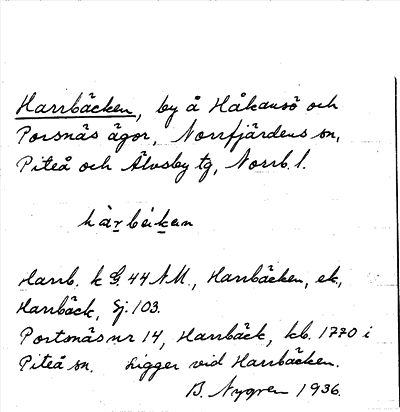 Harrbäcken, by å Håkansö och
Porsnäs ägor, Norrfjärdens sn,
Piteå och Älvsby tg, Norrb. l.
hàr̲béik̲en
Harrb. k G. 44 NM., Harrbäcken, ek.,
Harrbäck, Sj. 103.
Portsnäs nr 14, Harrbäck, kb. 1770 i
Piteå sn. Ligger vid Harrbäcken.
B. Nygren 1936.